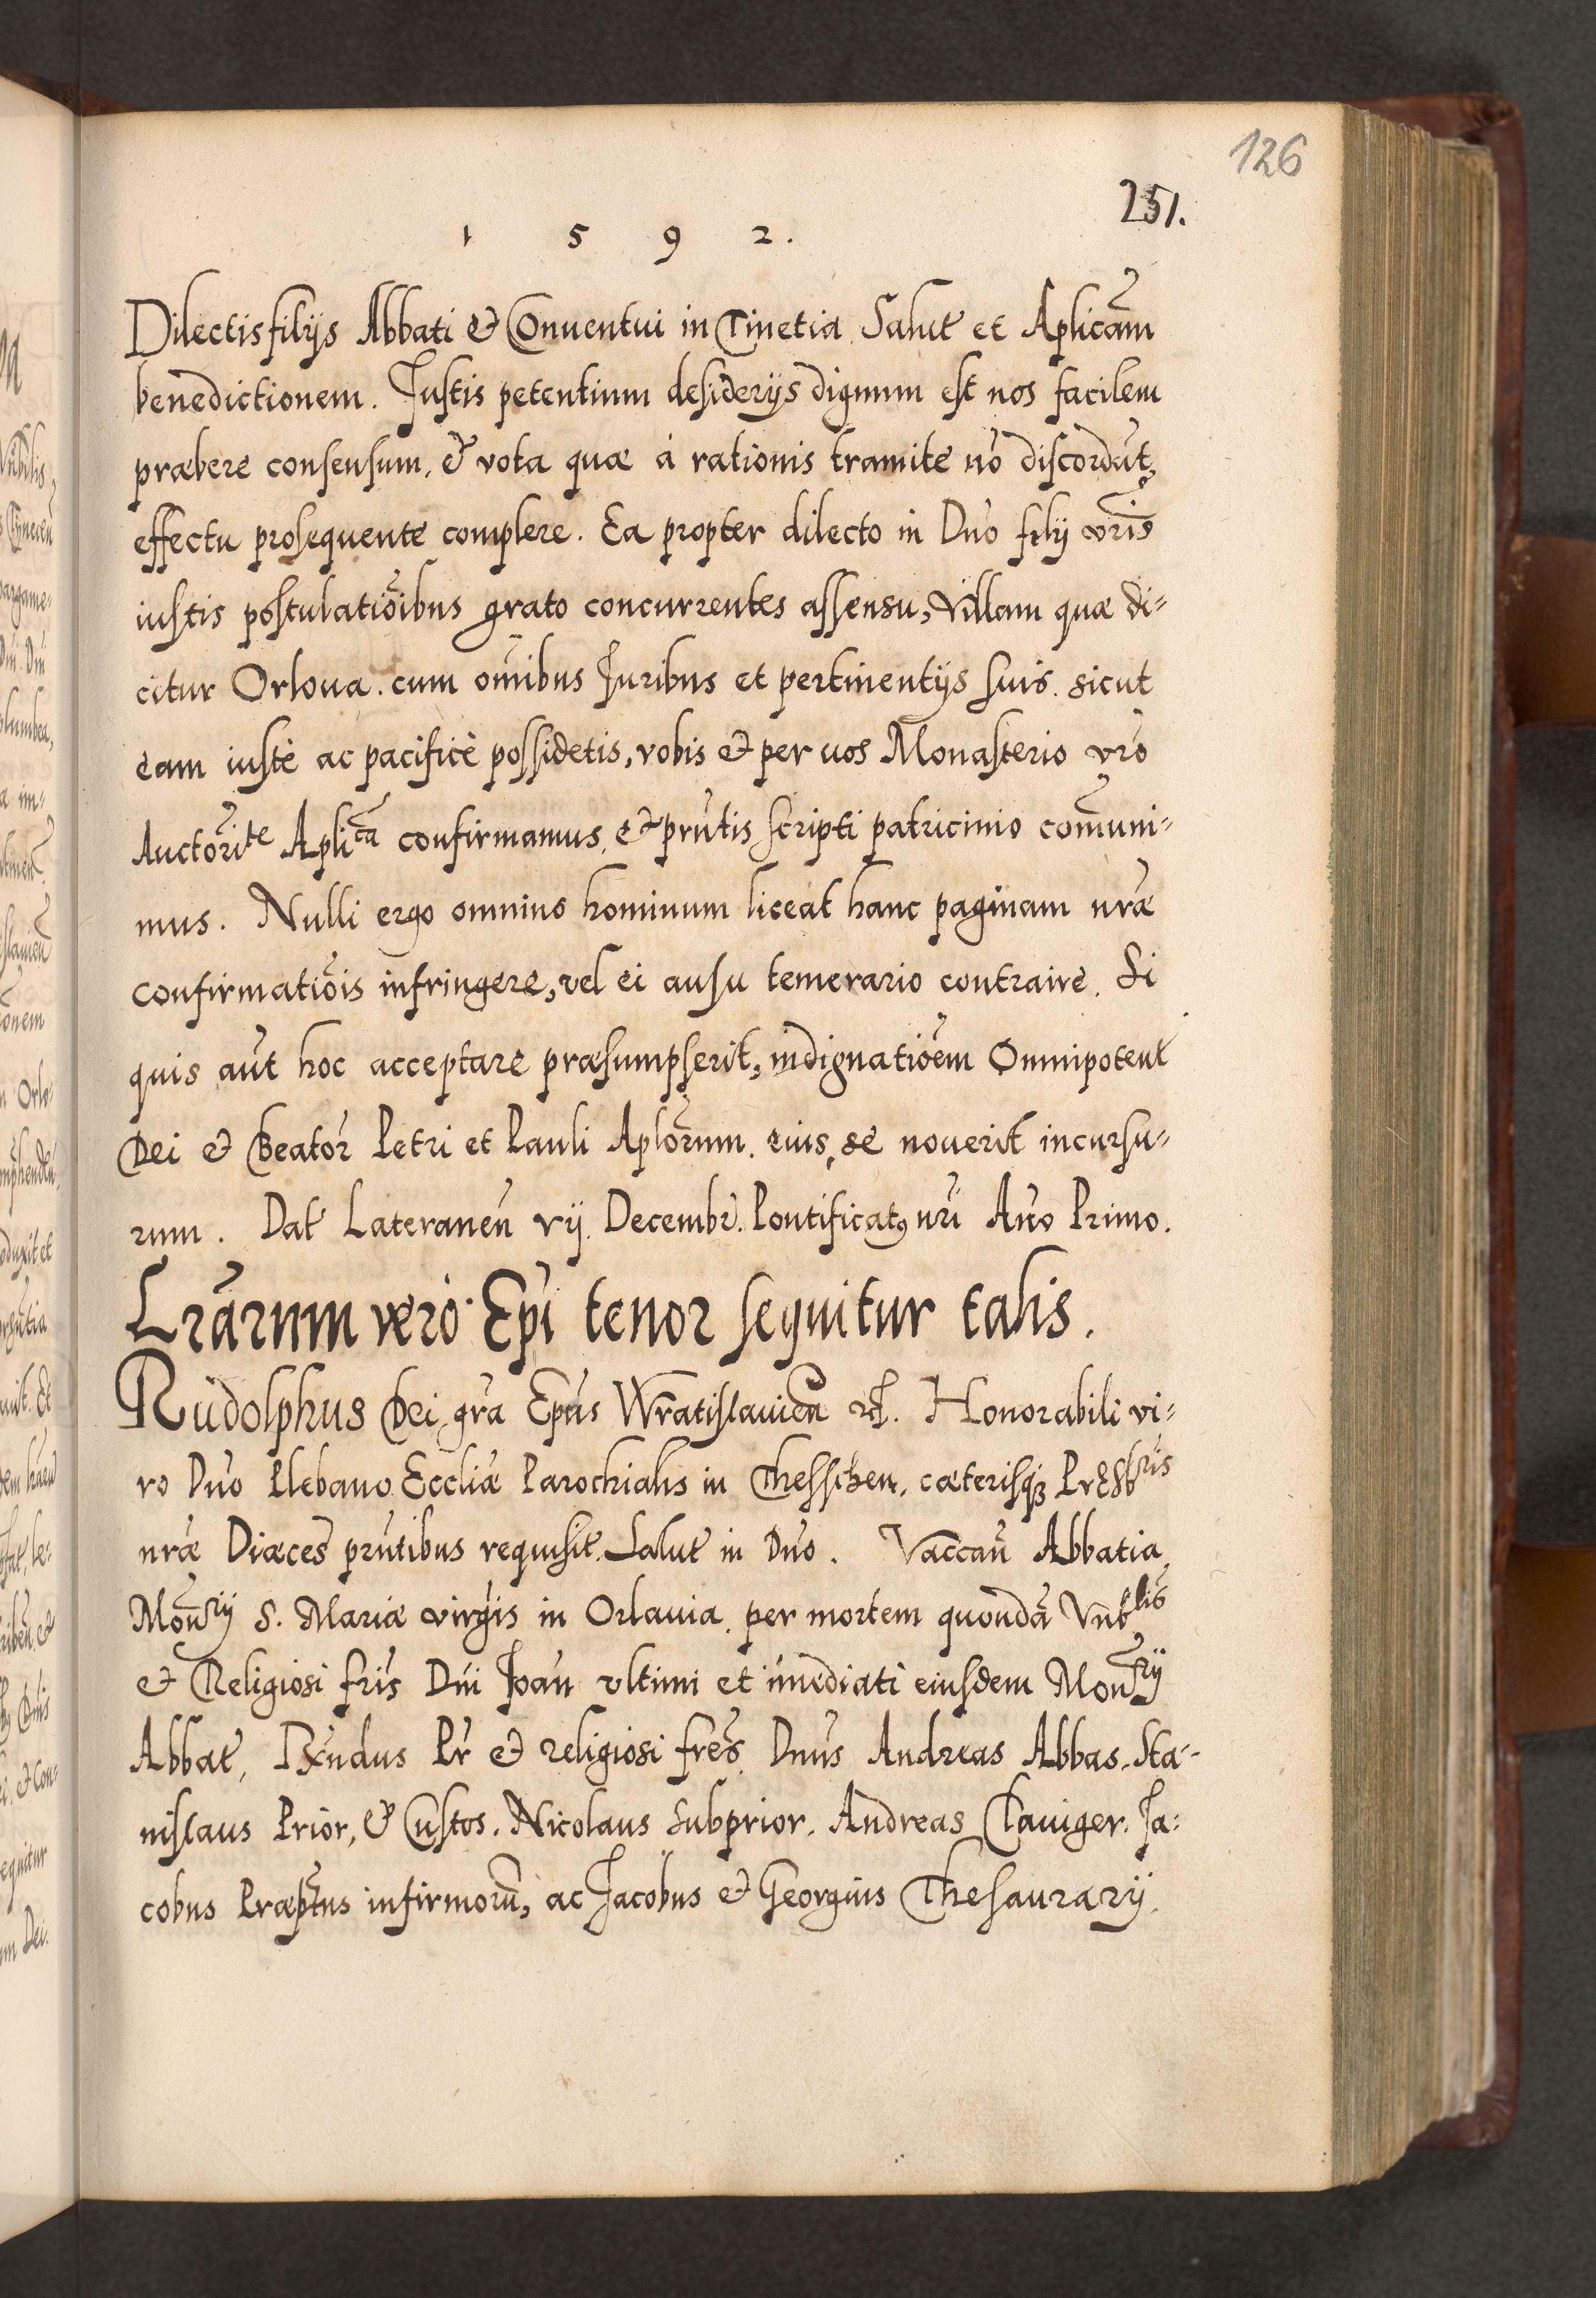 126
251.
1 5 9 2.
Dilectis filijs Abbati & Conuentui in Tinetia Salut̃ et Aplicam̃
benedictionem. Justis petentium desiderijs dignum est nos facilem
præbere consensum, & vota quæ à rationis tramite nõ discordãt,
effectu prosequente complere. Ea propter dilecto in Dño filij vr̃is
iustis postulatiõibus grato concurrentes assensu, Villam quæ di=
citur Orloua. cum om̃ibus Juribus et pertinentijs suis. sicut
eam iustè ac pacificè possidetis, vobis & per uos Monasterio vr̃o
Auctorĩte Aplicã confirmamus, & prñtis scripti patricinio com̃uni=
mus. Nulli ergo omnino hominum liceat hanc paginam nr̃æ
confirmatiõis infringere, vel ei ausu temerario contraire. Si
quis aut̃ hoc acceptare præsumpserit, indignatiõem Omnipotent̃
Dei & Beator̃ Petri et Pauli Aplõrum. eius, se nouerit incursu=
rum. Dat̃ Lateraneñ vij. Decembr̃. Pontificatꝰ nr̃i Año Primo.
Lr̃arum verò Epĩ tenor sequitur talis.
Rudolphus Dei gr̃a Epũs Wratislauieñ &c. Honorabili vi=
ro Dño Plebano Eccliæ Parochialis in Thesschen, cæterisqꝫ Presbr̃is
nr̃æ Diæces̃ prñtibus requisit̃. Salut̃ in Dño. Vaccañ Abbatia
Moñrij S. Mariæ virg̃is in Orlauia. per mortem quondã Vnb̃lis
& Religiosi fr̃is Dñi Joañ vltimi et im̃ediati eiusdem Moñrij
Abbat̃, Rx̃ndus Pr̃ & religiosi fr̃es. Dnũs Andreas Abbas. Sta=
nislaus Prior, & Custos. Nicolaus Subprior. Andreas Clauiger. Ja=
cobus Præpt̃us infirmorũ, ac Jacobus & Georgius Thesaurarij.